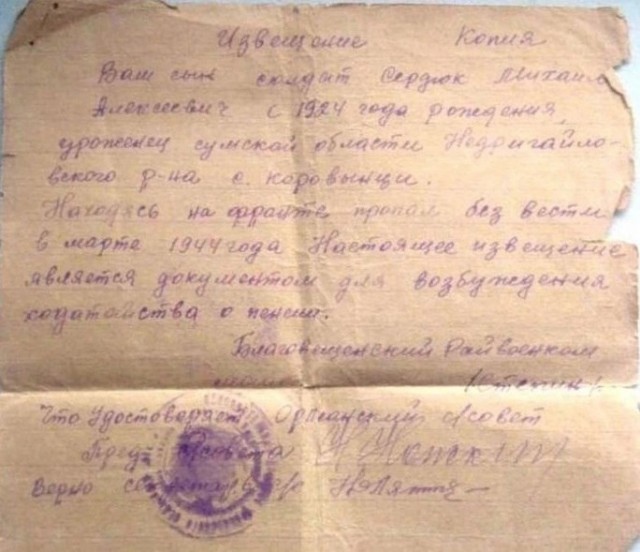 Извещение Копия
Ваш сын солдат Сердюк Михаил
Алексеевич с 1924 года рождения,
уроженец сумской области Недригайло-
вского р-на с. коровынци.
Находясь на фронте пропал без вести
в марте 1944 года Настоящее извещение
является документом для возбуждения
ходатайства о пенсии.
Благовещенский Райвоенком
Что Удостоверяет Орлянский с/совет
Пред с/совета
Верно секретарь с/с